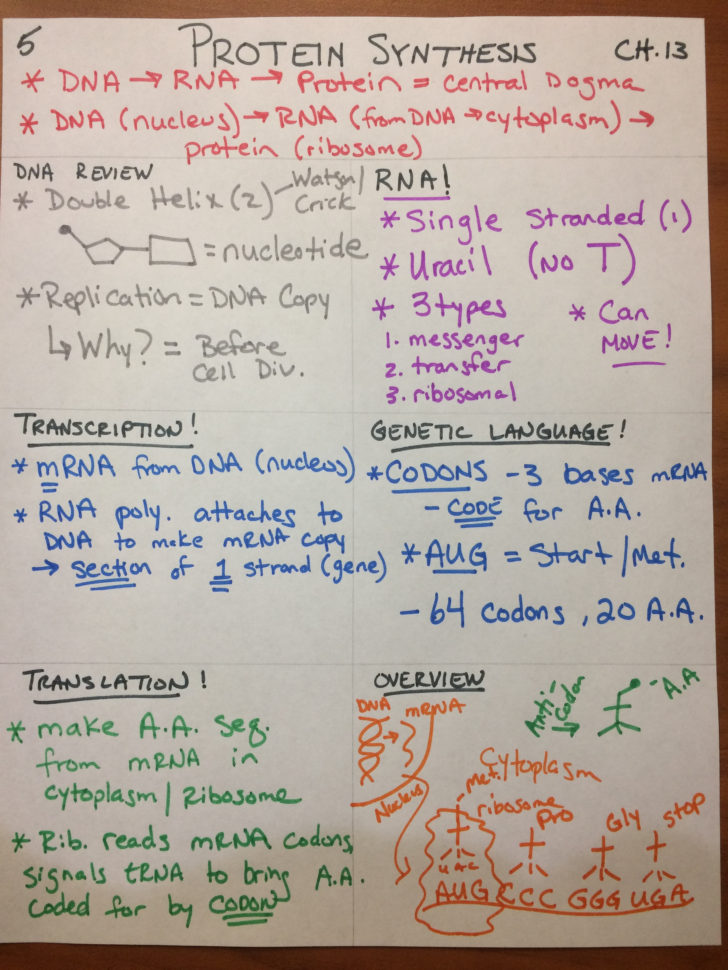 5 PROTEIN SYNTHESIS CH.13
* DNA → RNA → Protein = central Dogma
* DNA (nucleus) → RNA (from DNA → cytoplasm) →
protein (ribosome)
DNA REVIEW
* Double Helix (2) Watson/
Crick
= nucleotide
* Replication = DNA Copy
↳ Why? = Before
Cell Div.
RNA!
* Single Stranded (1)
* Uracil (NO T)
* 3 types
1. messenger
2. transfer
3. ribosomal
* Can
MOVE!
TRANSCRIPTION!
* mRNA from DNA (nucleus)
* RNA poly. attaches to
DNA to make mRNA copy
→ section of 1 strand (gene)
GENETIC LANGUAGE!
* CODONS - 3 bases mRNA
- CODE for A.A.
* AUG = Start/Met.
- 64 codons, 20 A.A.
TRANSLATION!
* make A.A. Seq.
from mRNA in
cytoplasm/Ribosome
* Rib. reads mRNA codons,
signals tRNA to bring A.A.
coded for by CODON
OVERVIEW
DNA mRNA
Nucleus
Anti-
Codon
A.A
Cytoplasm
Met.
ribosome
Pro
Gly
stop
UAC
AUG CCC GGG UGA